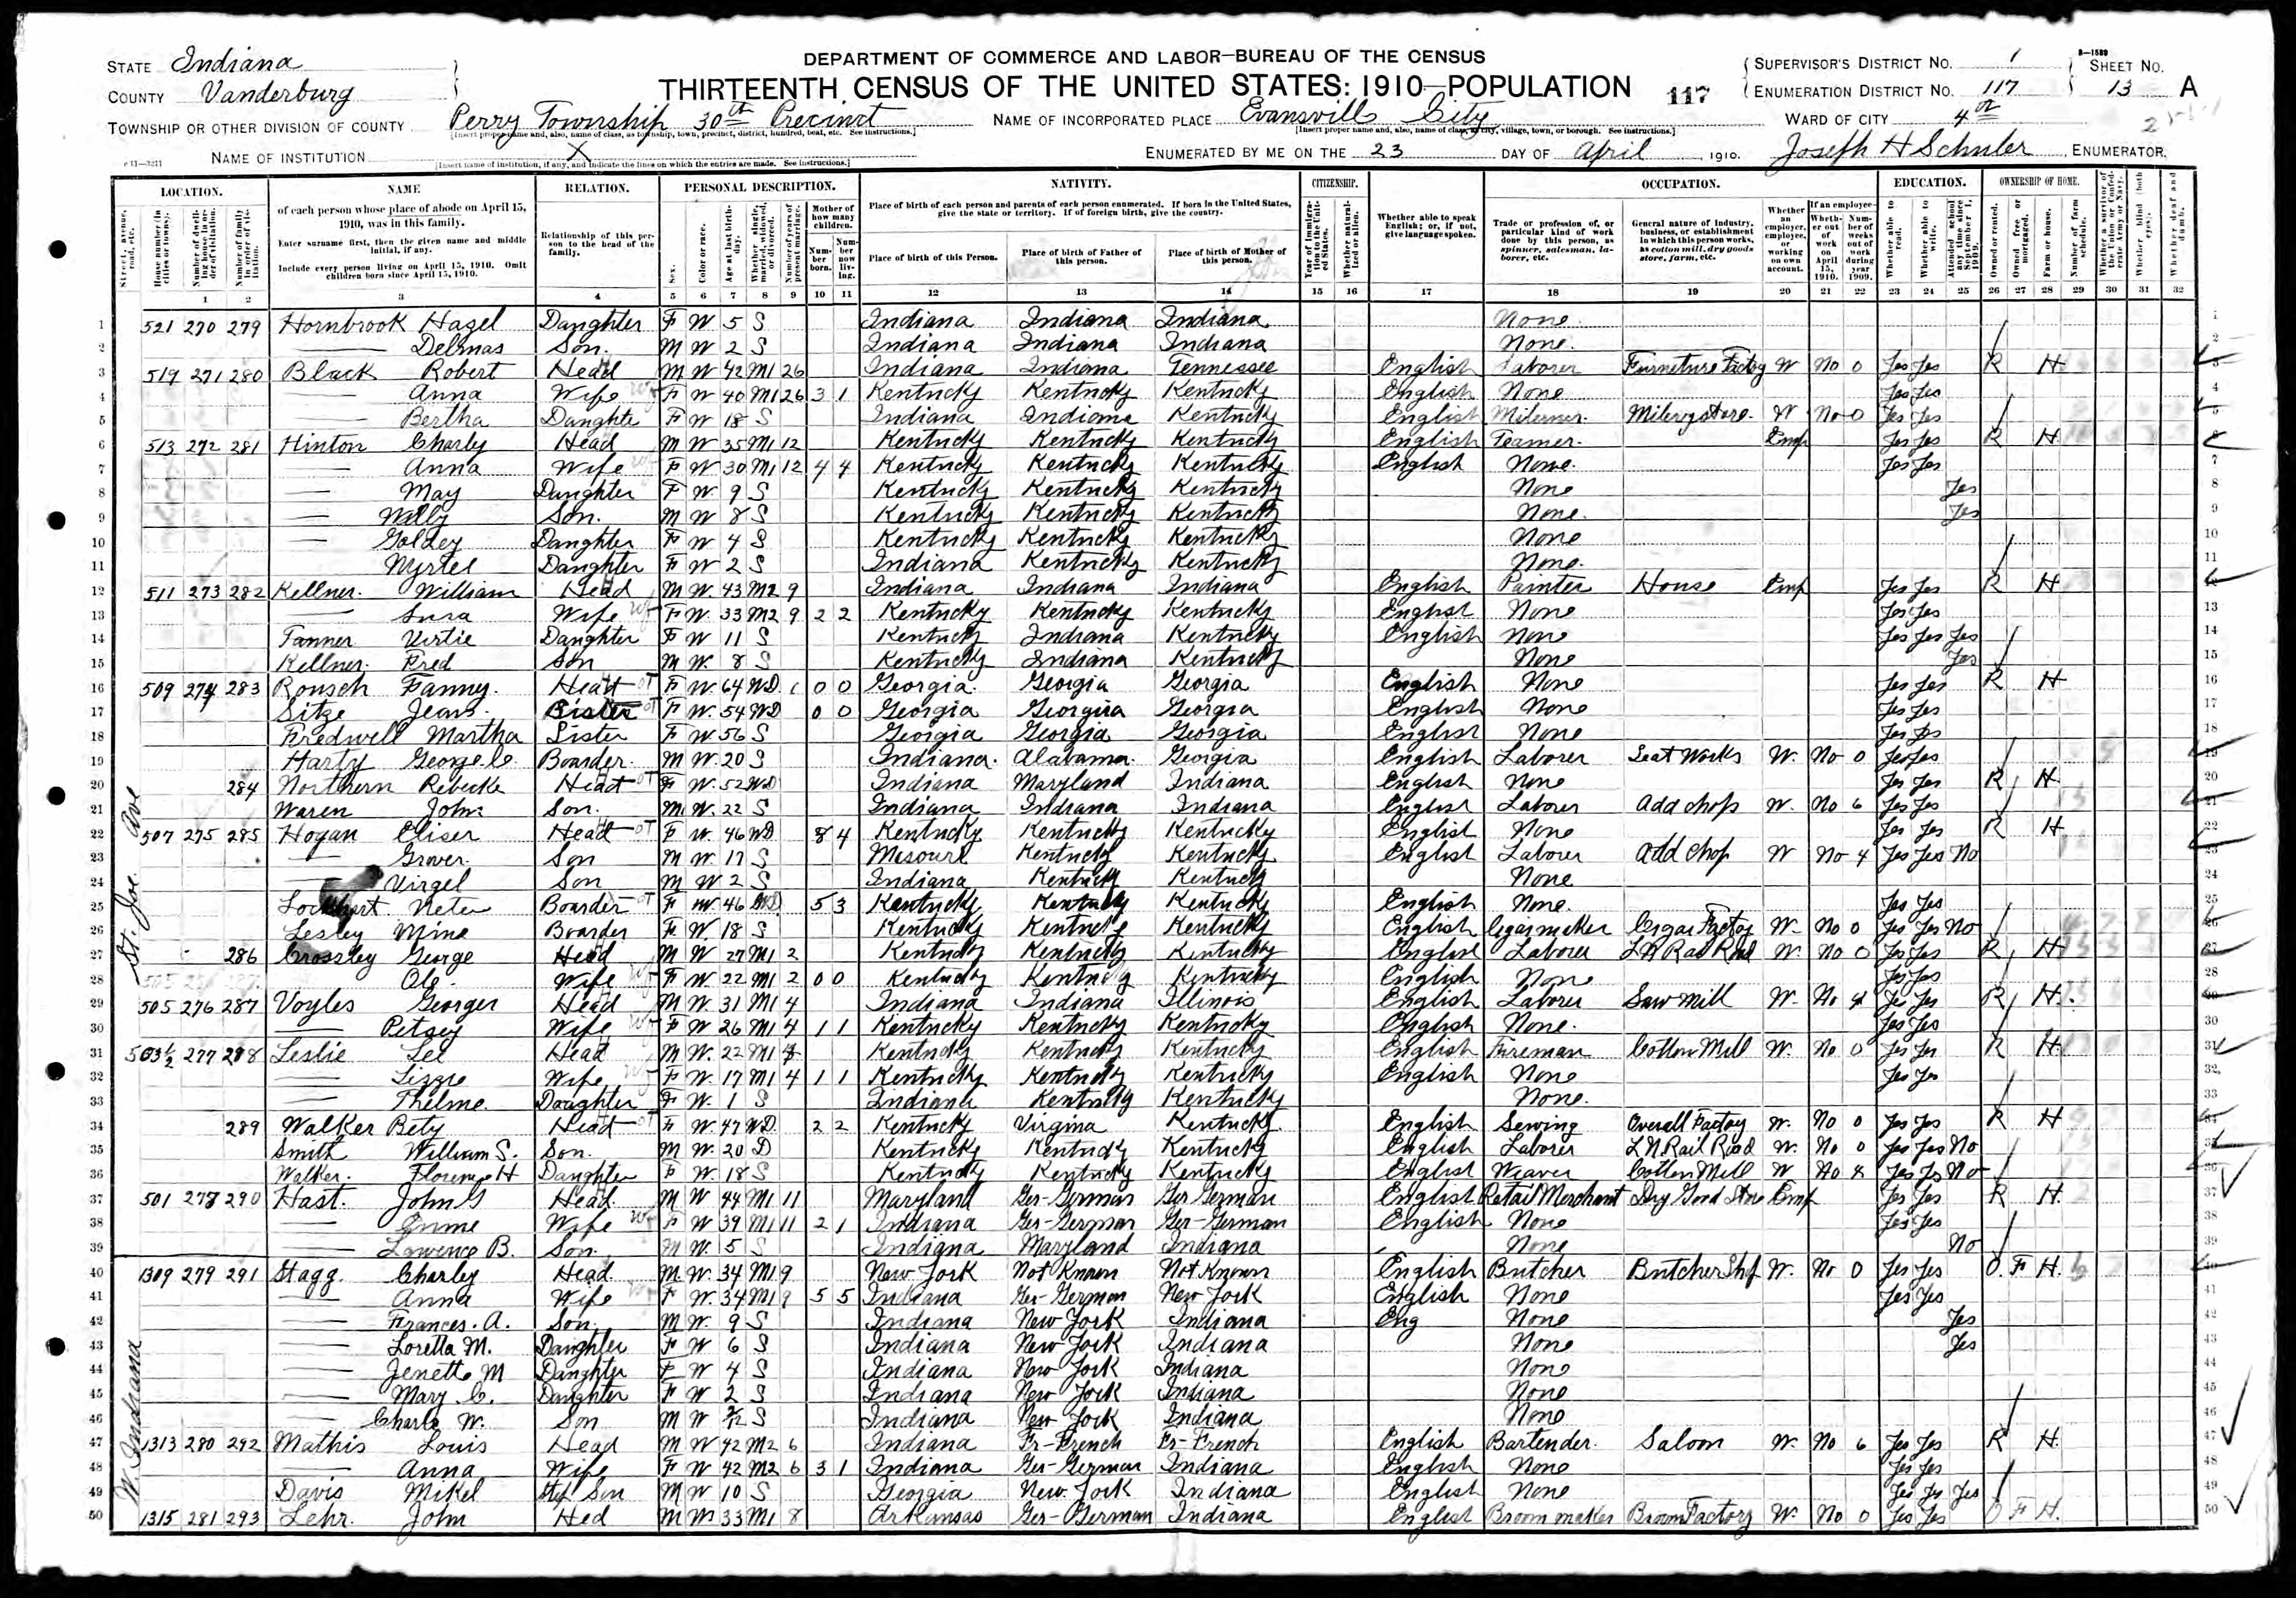 DEPARTMENT OF COMMERCE AND LABOR—BUREAU OF THE CENSUS
THIRTEENTH CENSUS OF THE UNITED STATES: 1910—POPULATION
117
STATE Indiana
COUNTY Vanderburg
TOWNSHIP OR OTHER DIVISION OF COUNTY Perry Township 30th Precinct
NAME OF INSTITUTION X
NAME OF INCORPORATED PLACE Evansville City
ENUMERATED BY ME ON THE 23 DAY OF April, 1910. Joseph H Schuler, ENUMERATOR.
SUPERVISOR'S DISTRICT NO. 1
ENUMERATION DISTRICT NO. 117
SHEET NO. 13 A
WARD OF CITY 4
LOCATION. NAME RELATION. PERSONAL DESCRIPTION. NATIVITY. CITIZENSHIP. OCCUPATION. EDUCATION. OWNERSHIP OF HOME.
of each person whose place of abode on April 15, 1910, was in this family.
Enter surname first, then the given name and middle initial, if any.
Include every person living on April 15, 1910. Omit children born since April 15, 1910.
Relationship of this person to the head of the family.
Place of birth of each person and parents of each person enumerated. If born in the United States, give the state or territory. If of foreign birth, give the country.
Place of birth of this Person. Place of birth of Father of this person. Place of birth of Mother of this person.
Whether able to speak English; or, if not, give language spoken.
Trade or profession of, or particular kind of work done by this person, as spinner, salesman, laborer, etc.
General nature of industry, business, or establishment in which this person works, as cotton mill, dry goods store, farm, etc.
St. Joe Ave
1 521 270 279 Hornbrook Hazel Daughter F W 5 S Indiana Indiana Indiana None
2 Delmas Son M W 2 S Indiana Indiana Indiana None
3 519 271 280 Black Robert Head M W 42 M1 26 Indiana Indiana Tennessee English Laborer Furneture Factoy W No 0 Yes Yes R H
4 Anna Wife F W 40 M1 26 3 1 Kentucky Kentucky Kentucky English None Yes Yes
5 Bertha Daughte F W 18 S Indiana Indiana Kentucky English Milerner Milerystore W No 0 Yes Yes
6 513 272 281 Hinton Charly Head M W 35 M1 12 Kentucky Kentucky Kentucky English Teamer Emp Yes Yes R H
7 Anna Wife F W 30 M1 12 4 4 Kentucky Kentucky Kentucky English None Yes Yes
8 May Daughter F W 9 S Kentucky Kentucky Kentucky None Yes
9 Willy Son M W 8 S Kentucky Kentucky Kentucky None Yes
10 Goldey Daughter F W 4 S Kentucky Kentucky Kentucky None
11 Myrtel Daughter F W 2 S Indiana Kentucky Kentucky None
12 511 273 282 Kellner William Head M W 43 M2 9 Indiana Indiana Indiana English Painter House Emp Yes Yes R H
13 Wife F W 33 M2 9 2 2 Kentucky Kentucky Kentucky English None Yes Yes
14 Tanner Virtie Daughter F W 11 S Kentucky Indiana Kentucky English None Yes Yes Yes
15 Kellner Fred Son M W 8 S Kentucky Indiana Kentucky None Yes
16 509 274 283 Ronsch Fanny Head F W 64 WD 0 0 Georgia Georgia Georgia English None Yes Yes R H
17 Sitze Jean Sister F W 54 WD 0 0 Georgia Georgia Georgia English None Yes Yes
18 Fredwell Martha Sister F W 56 S Georgia Georgia Georgia English None Yes Yes
19 Harty George C Boarder M W 20 S Indiana Alabama Georgia English Laborer Seat Works W No 0 Yes Yes
20 284 Northern Rebecke Head F W 52 WD Indiana Maryland Indiana English None Yes Yes R H
21 Waren John Son M W 22 S Indiana Indiana Indiana English Laborer add chops W No 6 Yes Yes
22 507 275 285 Hogan Eliser Head F W 46 WD 8 4 Kentucky Kentucky Kentucky English None Yes Yes R H
23 Grover Son M W 17 S Mesouri Kentucky Kentucky English Laborer add chop W No 4 Yes Yes No
24 Virgel Son M W 2 S Indiana Kentucky Kentucky None
25 Lockhart Neter Boarder F W 46 WD 5 3 Kentucky Kentucky Kentucky English None Yes Yes
26 Lesley Mina Boarder F W 18 S Kentucky Kentucky Kentucky English Cigarmaker Cigar Factoy W No 0 Yes Yes No
27 286 Crossley George Head M W 27 M1 2 Kentucky Kentucky Kentucky English Laborer L N Rail Road W No 0 Yes Yes R H
28 Ole Wife F W 22 M1 2 0 0 Kentucky Kentucky Kentucky English None Yes Yes
29 505 276 287 Voyles Georger Head M W 31 M1 4 Indiana Indiana Illinois English Laborer Saw mill W No Yes Yes R H
30 Petsey Wife F W 26 M1 4 1 1 Kentucky Kentucky Kentucky English None Yes Yes
31 503½ 277 288 Leslie Lee Head M W 22 M1 Kentucky Kentucky Kentucky English Fireman Cotton Mill W No 0 Yes Yes R H
32 Lizzie Wife F W 17 M1 4 1 1 Kentucky Kentucky Kentucky English None Yes Yes
33 Thelme Daughter F W 1 S Indiana Kentucky Kentucky None
34 289 Walker Bety Head F W 47 WD 2 2 Kentucky Virginia Kentucky English Sewing Overall Factory W No 0 Yes Yes R H
35 Smith William S. Son M W 20 D Kentucky Kentucky Kentucky English Laborer L N Rail Road W No 0 Yes Yes No
36 Walker Florence H Daughter F W 18 S Kentucky Kentucky Kentucky English Weaver Cotton Mill W No Yes Yes No
37 501 278 290 Hast John G Head M W 44 M1 11 Maryland Ger-German Ger German English Retail Merchant Dry Good Store Emp Yes Yes R H
38 Wife F W 39 M1 11 2 1 Indiana Ger-German Ger-German English None Yes Yes
39 Lawrence B. Son M W 5 S Indiana Maryland Indiana None No
W. Indiana
40 1309 279 291 Stagg Charley Head M W 34 M1 9 New York Not Known Not Known English Butcher Butcher Shp W No 0 Yes Yes O F H
41 Anna Wife F W 34 M1 9 5 5 Indiana Ger-German New York English None Yes Yes
42 Frances. A. Son M W 9 S Indiana New York Indiana Eng None Yes
43 Loretta M. Daughter F W 6 S Indiana New York Indiana None Yes
44 Jenette M Daughter F W 4 S Indiana New York Indiana None
45 Mary C. Daughter F W 2 S Indiana New York Indiana None
46 Charls W. Son M W S Indiana New York Indiana None
47 1313 280 292 Mathis Louis Head M W 42 M2 6 Indiana Fr-French Fr-French English Bartender Saloon W No 6 Yes Yes R H
48 Anna Wife F W 42 M2 6 3 1 Indiana Ger-German Indiana English None Yes Yes
49 Davis Mikel Step Son M W 10 S Georgia New York Indiana English None Yes Yes Yes
50 1315 281 293 Lehr John Hed M W 33 M1 8 Arkansas Ger-German Indiana English Broom maker Broom Factory W No 0 Yes Yes O F H